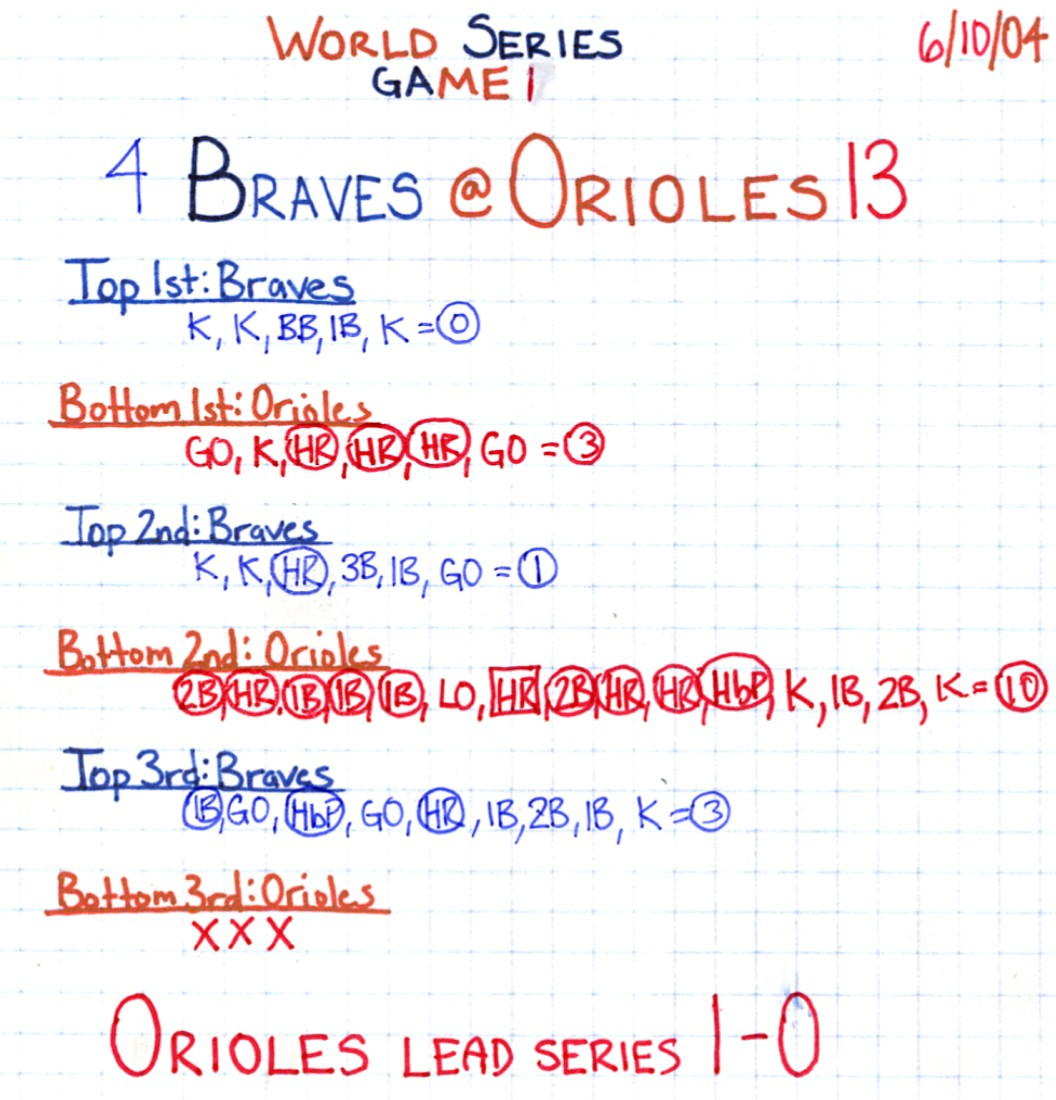 WORLD SERIES 6/10/04
GAME 1
4 BRAVES @ ORIOLES 13
Top 1st: Braves
K, K, BB, 1B, K = 0
Bottom 1st: Orioles
GO, K, HR, HR, HR, GO = 3
Top 2nd: Braves
K, K, HR, 3B, 1B, GO = 1
Bottom 2nd: Orioles
2B, HR, 1B, 1B, 1B, LO, HR, 2B, HR, HR, HbP, K, 1B, 2B, K = 10
Top 3rd: Braves
1B, GO, HbP, GO, HR, 1B, 2B, 1B, K = 3
Bottom 3rd: Orioles
X X X
ORIOLES LEAD SERIES 1-0